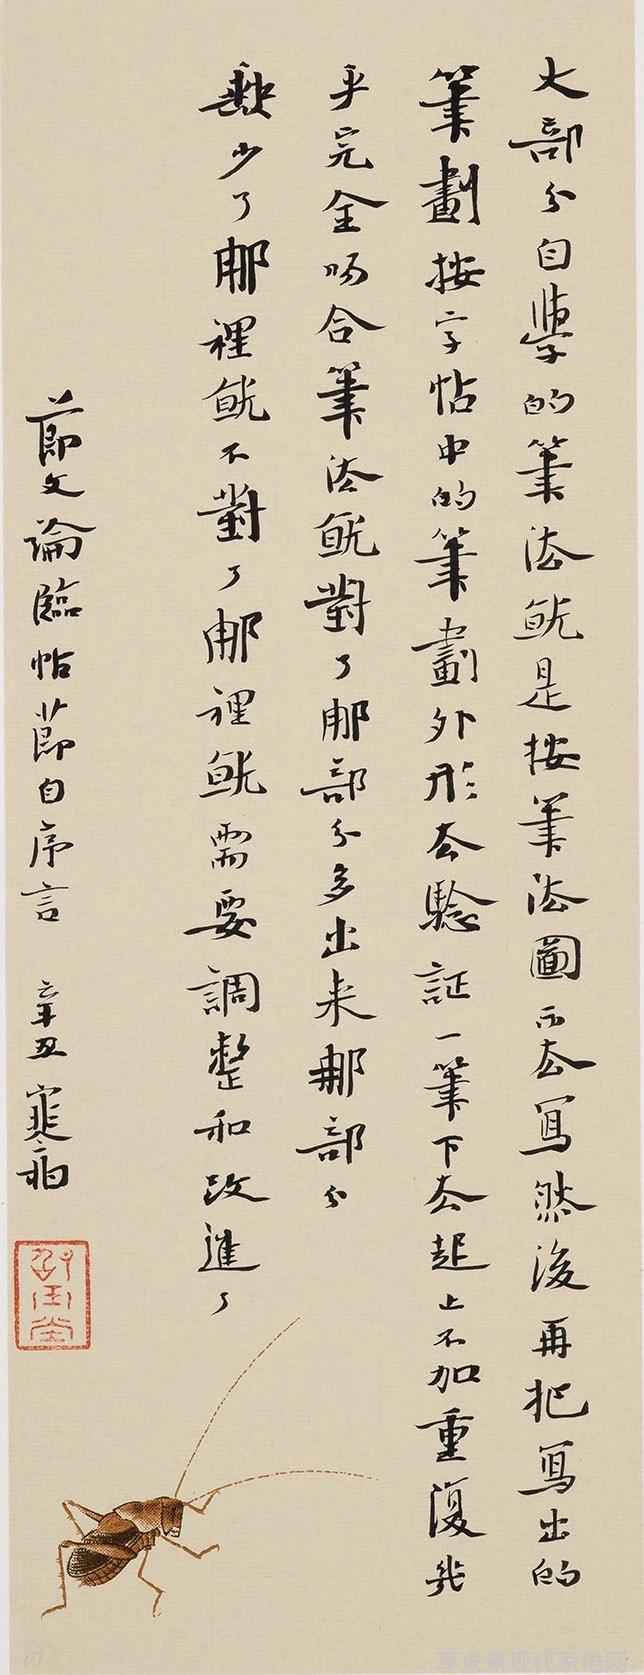 大部分自學的筆法就是按筆法圖示去寫然後再把寫出的
筆劃按字帖中的筆劃外形去驗証一筆下去起上不加重復幾
乎完全吻合筆法就對了那部分多出來那部分
缺少了那裡就不對了那裡就需要調整和改進了
節文論臨帖節自序言 辛丑